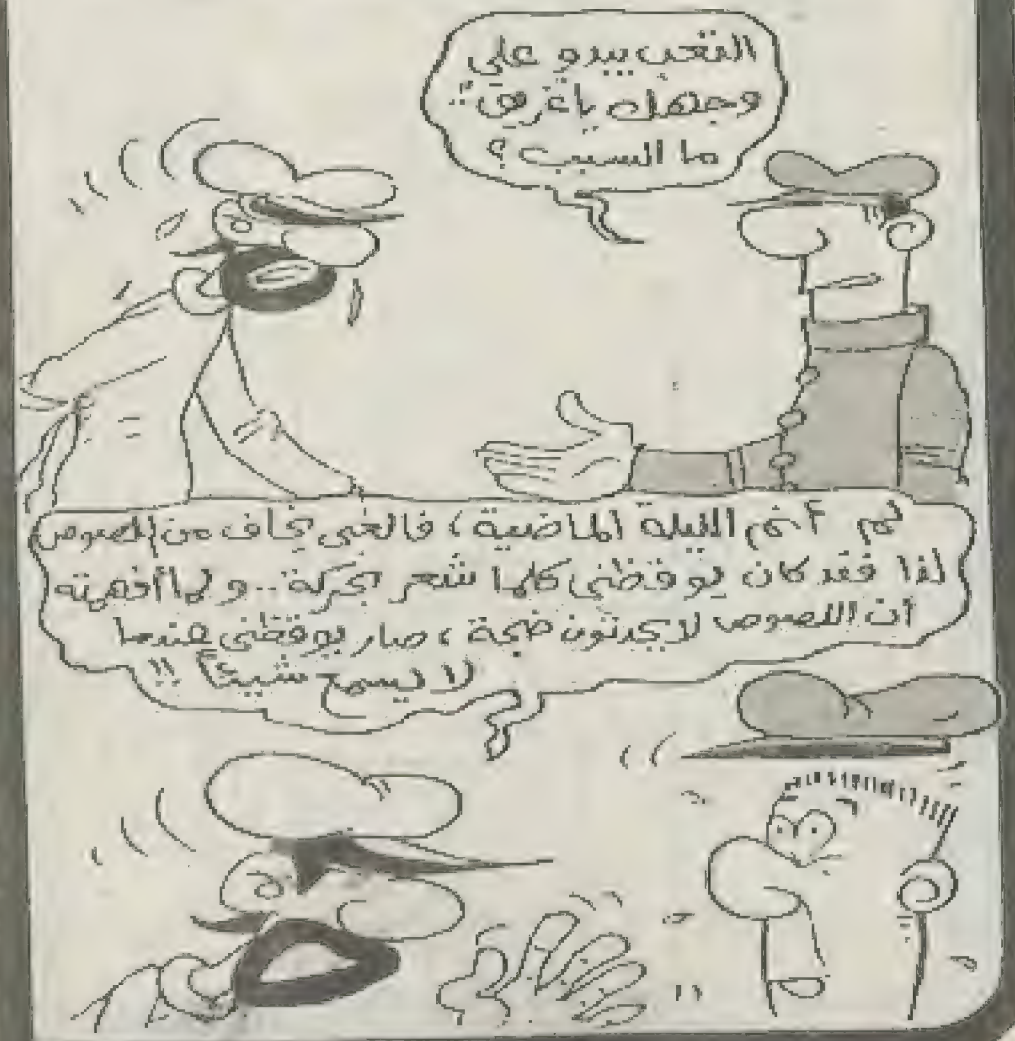 التعب يبدو على
وجهك يا عزيزي..
ما السبب؟
لم أنم الليلة الماضية، فالغبي يخاف من اللصوص
لذا فقد كان يوقظني كلما شعر بحركة.. ولما أفهمته
أن اللصوص لا يحدثون ضجة، صار يوقظني عندما
لا يسمع شيئاً!!